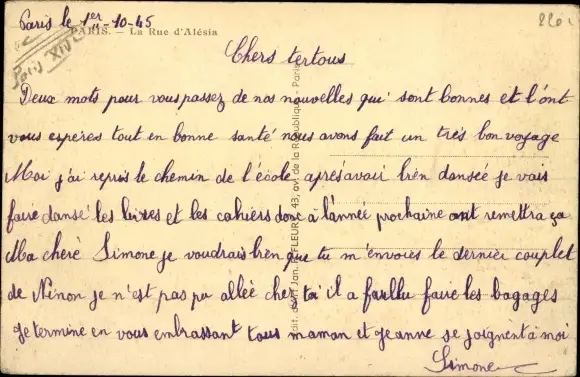 Paris le 1er-10-45
PARIS. — La Rue d'Alésia
Paris XIVe
Chers tertous
Deux mots pour vous passez de nos nouvelles qui sont bonnes et l'ont
vous espères tout en bonne santé nous avons fait un très bon voyage
Moi j'ai repris le chemin de l'école après avoir bien dansée je vais
faire dansé les livres et les cahiers donc à l'année prochaine ont remettra ça
Ma chèré Simone je voudrais bien que tu m'envoies le dernier couplet
de Ninon je n'est pas pu allée chez toi il a farllu faire les bagages
Je termine en vous embrassant tous maman et jeanne se joignent à moi
Simone
43, av. de la République - Paris